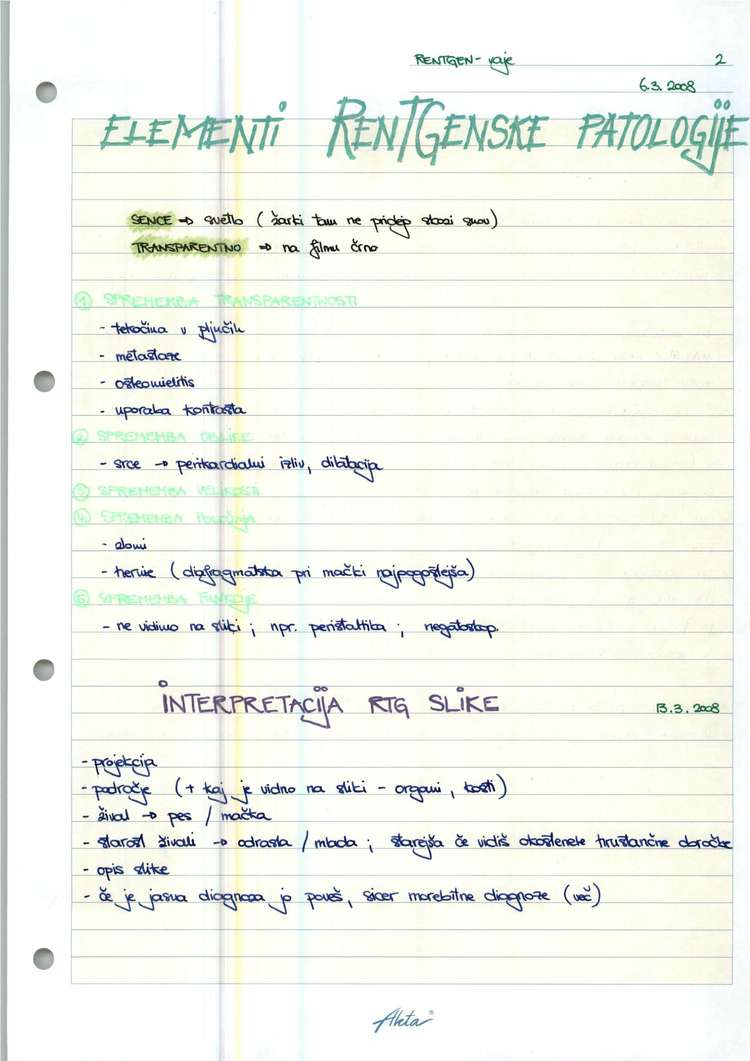 RENTGEN - vaje 2
6.3.2008
ELEMENTI RENTGENSKE PATOLOGIJE
SENCE → svetlo (žarki tam ne pridejo skozi snov)
TRANSPARENTNO → na filmu črno
① SPREMEMBA TRANSPARENTNOSTI
- tekočina v pljučih
- metastaze
- osteomielitis
- uporaba kontrasta
② SPREMEMBA OBLIKE
- srce → perikardialni izliv, dilatacija
③ SPREMEMBA VELIKOSTI
④ SPREMEMBA POLOŽAJA
- zlomi
- hernie (diafragmatska pri mački najpogostejša)
⑤ SPREMEMBA FUNKCIJE
- ne vidimo na sliki ; npr. peristaltika ; negatoskop
INTERPRETACIJA RTG SLIKE 13.3.2008
- projekcija
- področje (+ kaj je vidno na sliki - organi, kosti)
- žival → pes / mačka
- starost živali → odrasla / mlada ; starejša če vidiš okostenele hrustančne obročke
- opis slike
- če je jasna diagnoza jo poveš, sicer morebitne diagnoze (več)
Akta